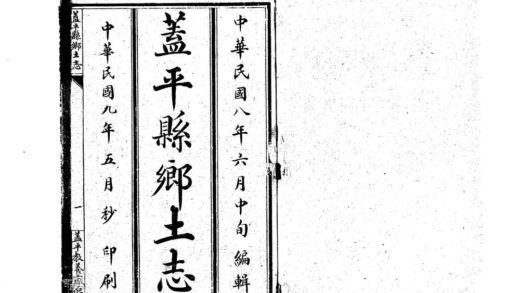 中華民國八年六月中旬編輯
蓋平縣鄉土志
中華民國九年五月秒印刷
蓋平縣鄉土志
一
蓋平教養